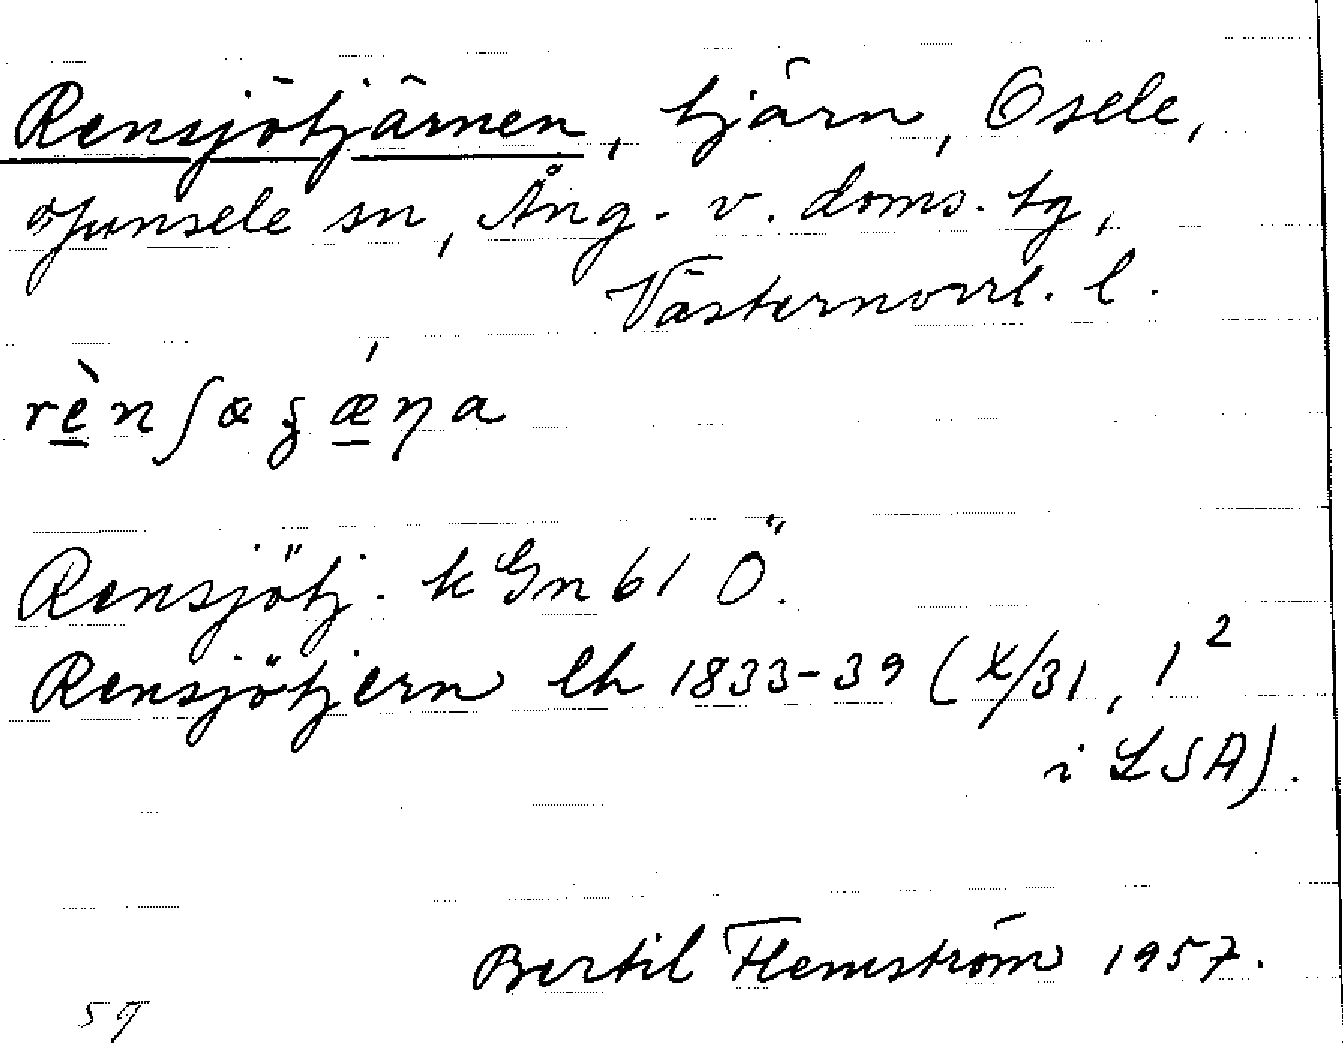 Rensjötjärnen, tjärn, Osele,
Junsele sn, Ång. v. doms. tg,
Västernorrl. l.
rènʃæʒǽŋa
Rensjötj. k Gn 61 Ö.
Rensjötjern lh 1833-39 (X/31, 1²
i LSA).
Bertil Flemström 1957.